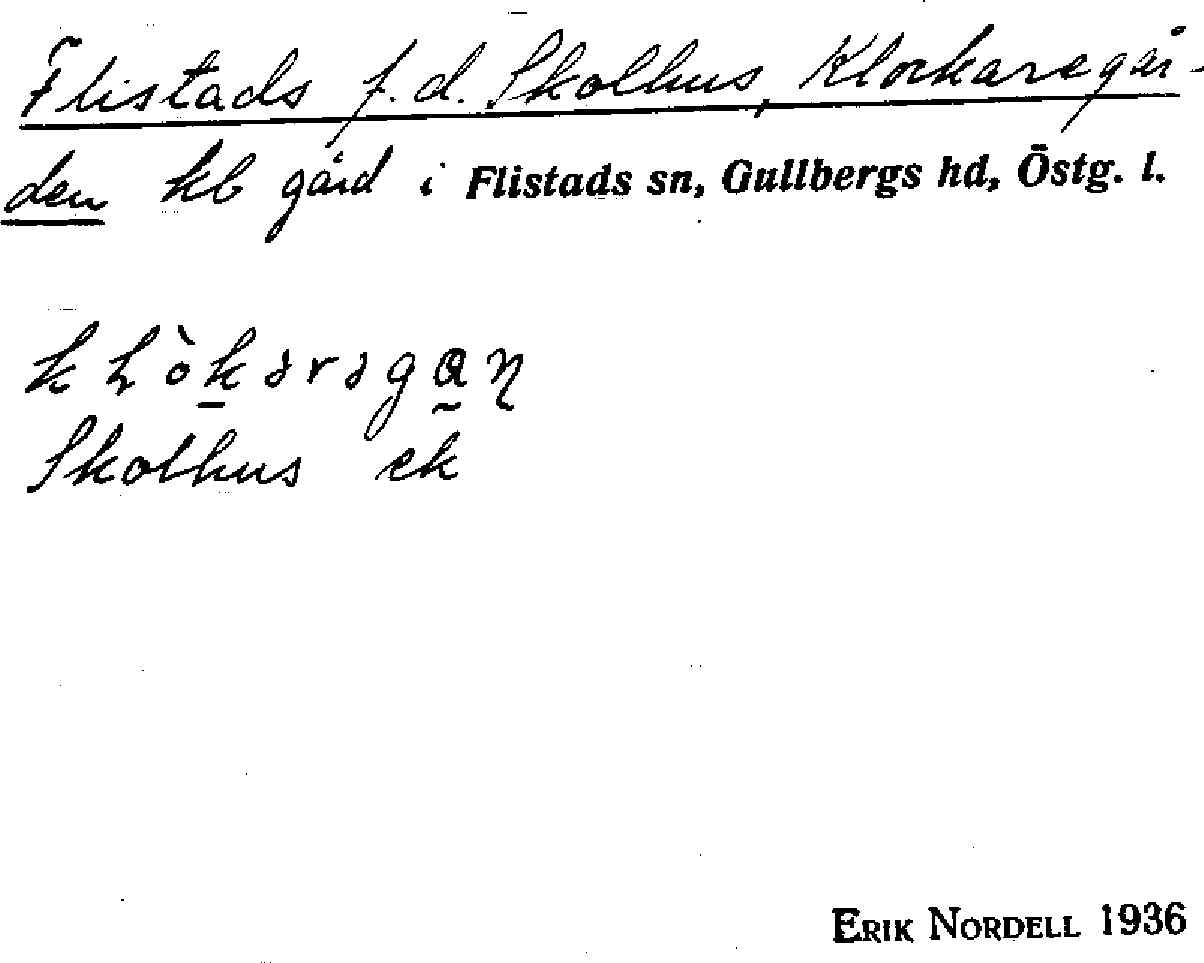 Flistads f.d. Skolhus, Klockaregår-
den kb gård i Flistads sn, Gullbergs hd, Östg. l.
Skolhus ek
ERIK NORDELL 1936